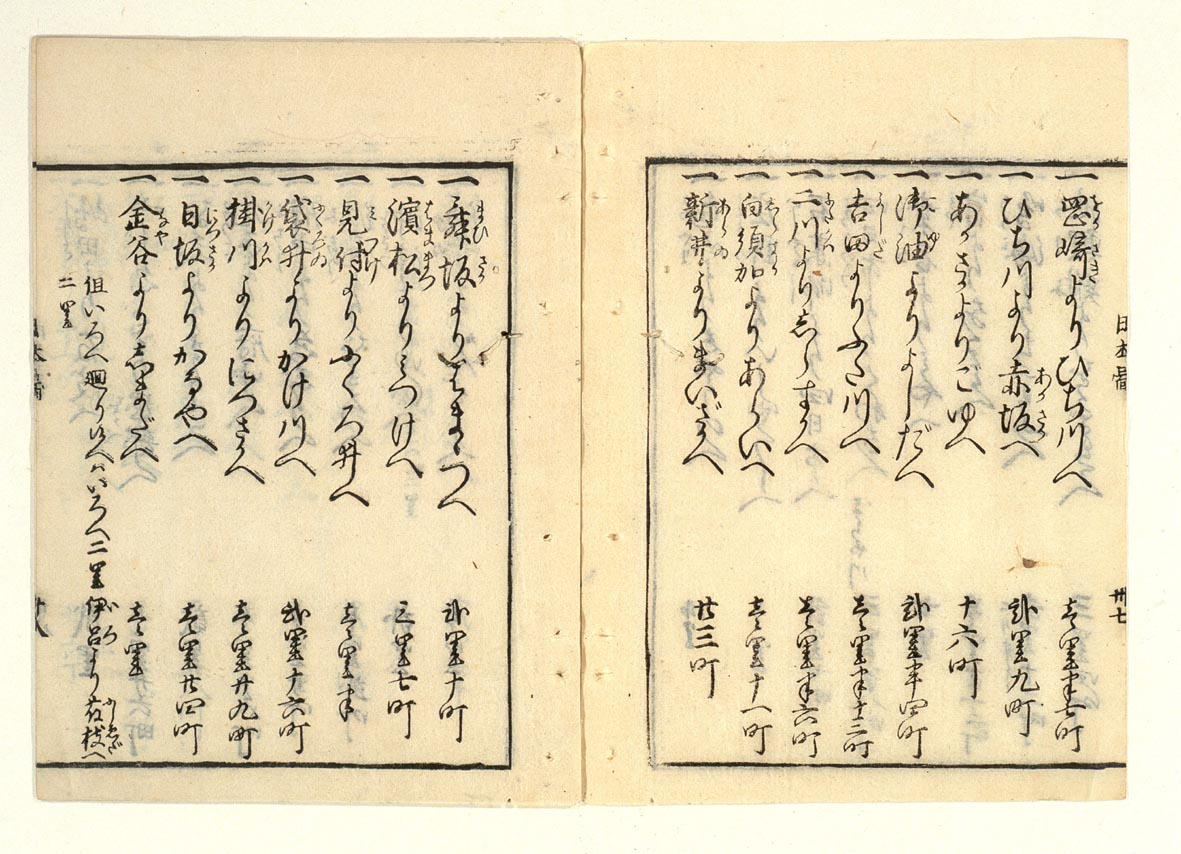 日本圖
卅七
一岡崎よりひち川へ 壱里半七町
一ひち川より赤坂へ 弐里九町
一あかさかよりごゆへ 十六町
一御油よりよしだへ 弐里半四町
一吉田よりふた川へ 壱里半十三町
一二川よりしらすかへ 壱里半六町
一白須加よりあらいへ 壱里十八町
一新井よりまいざかへ 廿三町
一舞坂よりはまゝつへ 弐里十町
一濱松よりみつけへ 三里七町
一見付よりふくろ井へ 壱里半
一袋井よりかけ川へ 弐里十六町
一掛川よりにつさかへ 壱里廿九町
一日坂よりかなやへ 壱里廿四町
一金谷よりしまだへ 壱里
但いろへ廻り候へハいろへ二里伊呂より藤枝へ
二里
日本圖
卅八